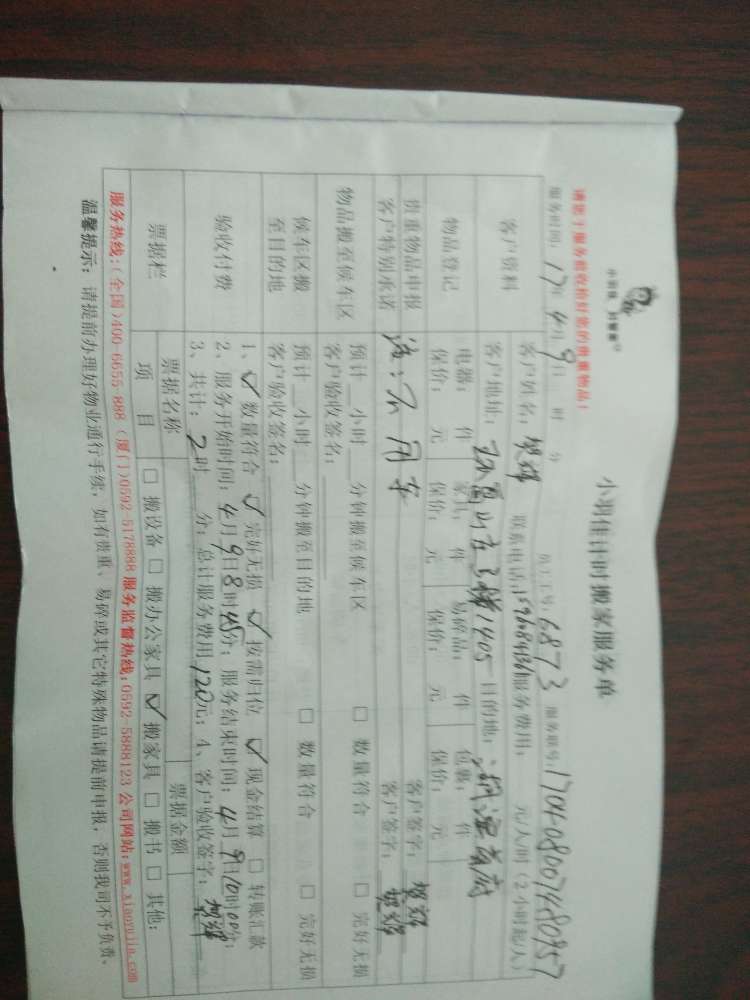 小羽佳计时搬家服务单
请您于服务前收拾好您的贵重物品!
服务时间: 17年4月9日 时 分 员工工号: 6873 服务账号: 170408007480957
客户资料 客户姓名: 联系电话: 服务费用: 元/人/时(2小时起/人)
客户地址: 1405 目的地:
物品登记 电器: 件 家具: 件 易碎品: 件 包裹: 件
保价: 元 保价: 元 保价: 元 保价: 元
贵重物品申报 客户签字:
客户特别承诺 注: 不用车 客户签字:
物品搬至候车区 预计 小时 分钟搬至候车区 □ 数量符合 □ 完好无损
客户验收签名:
候车区搬至目的地 预计 小时 分钟搬至目的地 □ 数量符合 □ 完好无损
客户验收签名:
验收付费 1、✓ 数量符合 ✓ 完好无损 ✓ 按需归位 ✓ 现金结算 □ 转账汇款
2、服务开始时间: 4月9日8时45分; 服务结束时间: 4月9日10时00分;
3、共计: 2时 分; 总计服务费用120元; 4、客户验收签字:
票据栏 票据名称 票据金额
项目 □ 搬设备 □ 搬办公家具 ✓ 搬家具 □ 搬书 □ 其他:
服务热线:(全国)400-6655-888 (厦门)0592-5178888 服务监督热线:0592-5888123 公司网站:www.xiaoyujia.com
温馨提示: 请提前办理好物业通行手续, 如有贵重、易碎或其它特殊物品请提前申报, 否则我司不予负责。